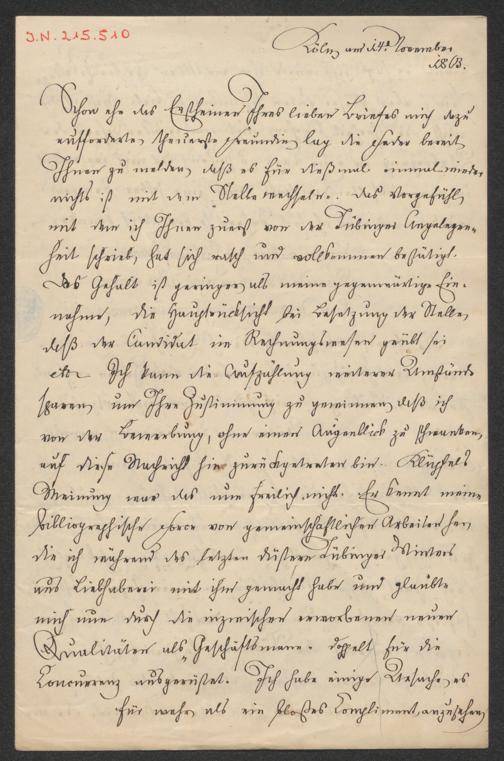 J.N. 215.510
Köln am 14ᵗ November
1863.
Schon ehe das Erscheinen Ihres lieben Briefes mich dazu
aufforderte, theuerste Freundin, lag die Feder bereit,
Ihnen zu melden, daß es für dießmal einmal wieder
nichts ist mit dem Stellewechseln. Das Vorgefühl,
mit dem ich Ihnen zuerst von der Tübinger Angelegen-
heit schrieb, hat sich rasch und vollkommen bestätigt.
Das Gehalt ist geringer als meine gegenwärtige Ein-
nahme, die Hauptrücksicht bei Besetzung der Stelle,
daß der Candidat im Rechnungswesen geübt sei
etc. Ich kann die Aufzählung weiterer Umstände
sparen, um Ihre Zustimmung zu gewinnen, daß ich
von der Bewerbung, ohne einen Augenblick zu schwanken,
auf diese Nachricht hin zurückgetreten bin. Klüpfels
Meinung war das nun freilich nicht. Er kennt meine
bibliographische Force von gemeinschaftlichen Arbeiten her,
die ich während des letzten düstern Tübinger Winters
aus Liebhaberei mit ihm gemacht habe und glaubte
mich nun durch die inzwischen erworbenen neuen
Qualitäten als „Geschäftsmann" doppelt für die
Concurrenz ausgerüstet. Ich habe einige Ursache, es
für mehr als ein bloßes Compliment anzusehen,